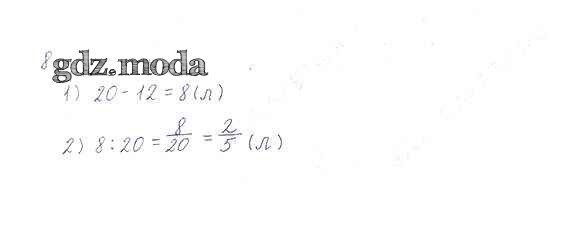 8 gdz.moda
1) 20 - 12 = 8 (л)
2) 8 : 20 = 8/20 = 2/5 (л)